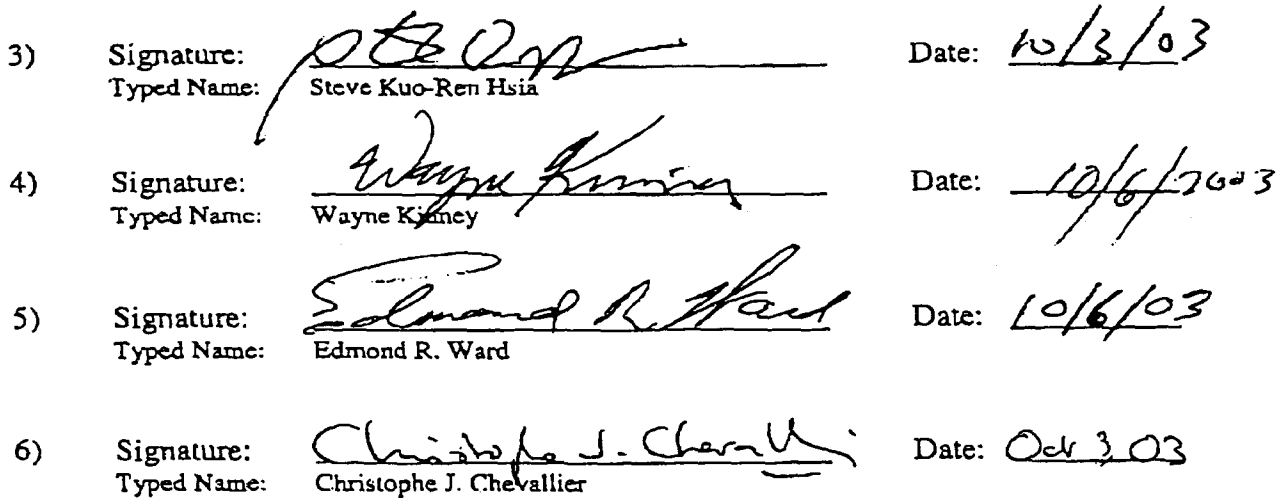 3) Signature: Date: 10/3/03
Typed Name: Steve Kuo-Ren Hsia
4) Signature: Wayne Kinney Date: 10/6/2003
Typed Name: Wayne Kinney
5) Signature: Edmond R. Ward Date: 10/6/03
Typed Name: Edmond R. Ward
6) Signature: Christophe J. Chevallier Date: Oct 3, 03
Typed Name: Christophe J. Chevallier